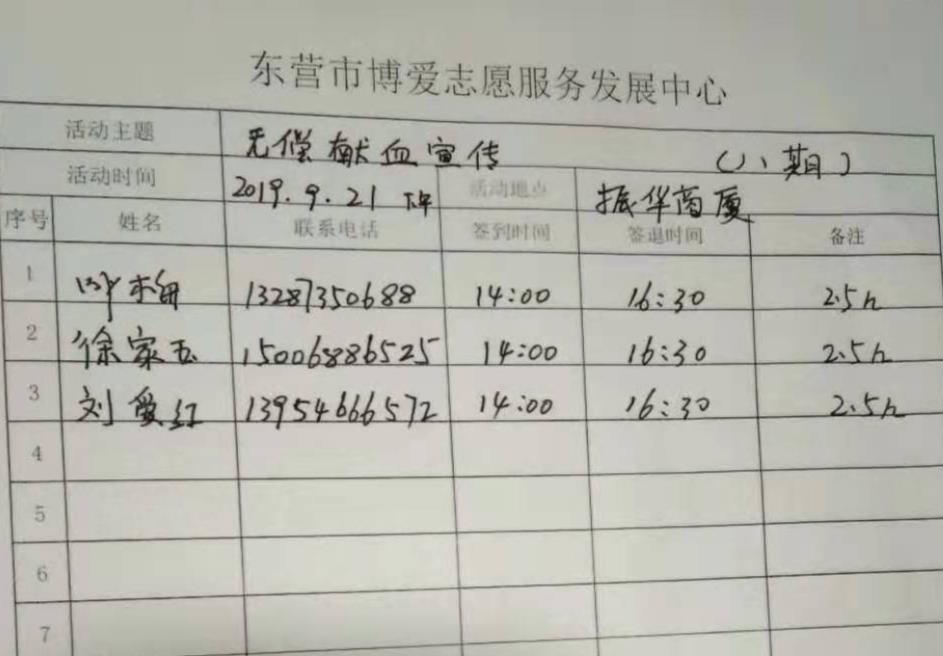 东营市博爱志愿服务发展中心
活动主题 无偿献血宣传 (八期)
活动时间 2019.9.21 下午 活动地点 振华商厦
序号 姓名 联系电话 签到时间 签退时间 备注
1 13287350688 14:00 16:30 2.5h
2 徐家玉 15006886525 14:00 16:30 2.5h
3 刘爱红 13954666572 14:00 16:30 2.5h
4
5
6
7